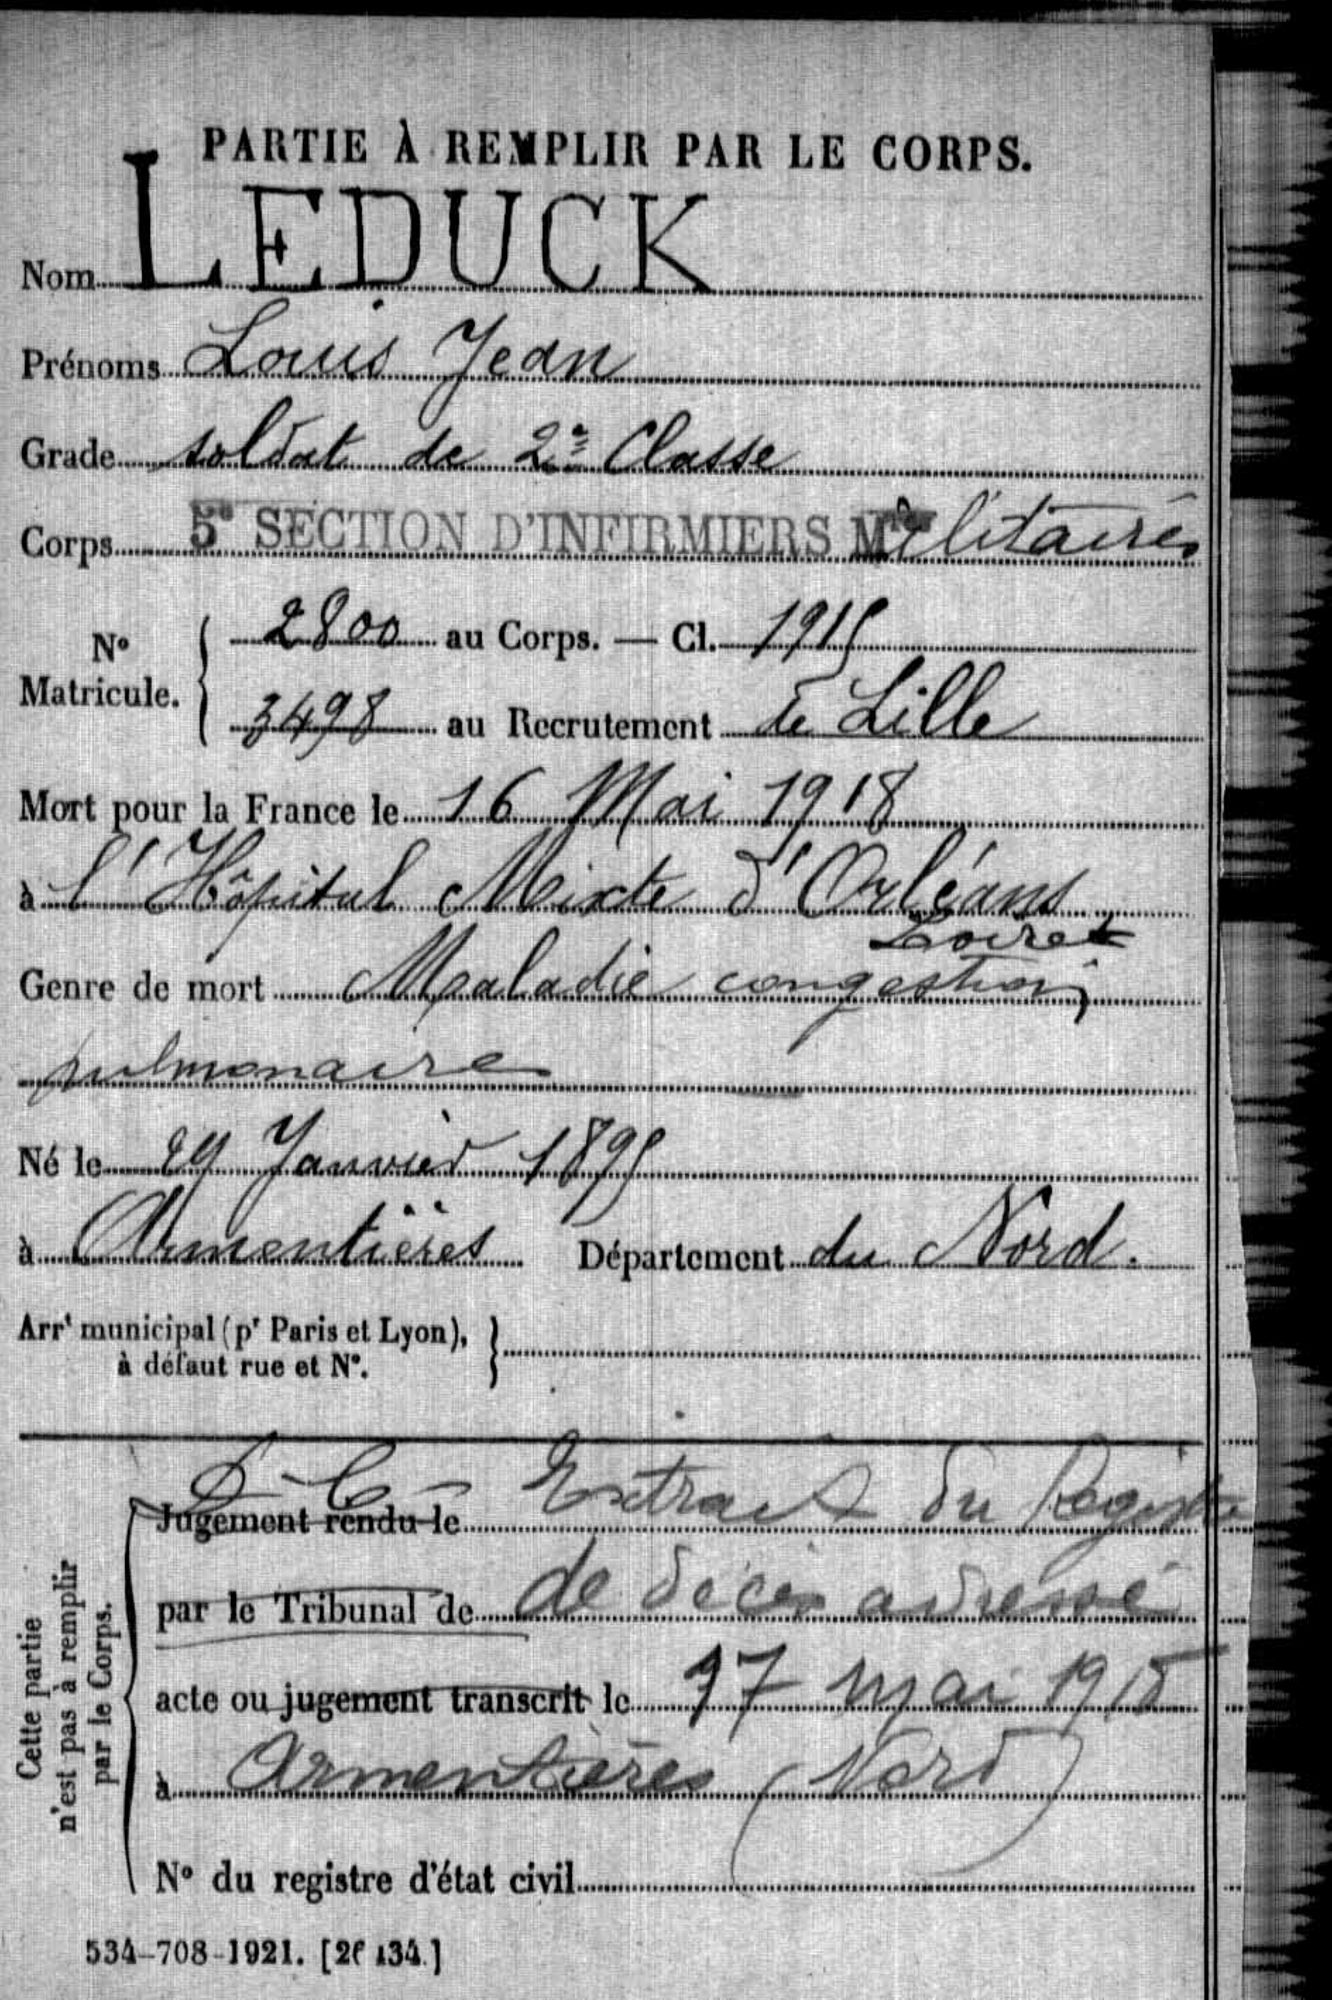 PARTIE À REMPLIR PAR LE CORPS.
Nom LEDUCK
Prénoms Louis Jean
Grade soldat de 2e Classe
Corps 5e SECTION D'INFIRMIERS Militaires
No Matricule. { 2800 au Corps. — Cl. 1915
3498 au Recrutement de Lille
Mort pour la France le 16 Mai 1918
à l'Hôpital Mixte d'Orléans
Loiret
Genre de mort Maladie congestion
pulmonaire
Né le 29 Janvier 1895
à Armentières Département du Nord.
Arrt municipal (pr Paris et Lyon),
à défaut rue et No.
Cette partie
n'est pas à remplir
par le Corps.
Jugement rendu le Extrait du Registre
par le Tribunal de de décès adressé
acte ou jugement transcrit le 17 mai 1918
à Armentières (Nord)
No du registre d'état civil
534-708-1921. [26134.]